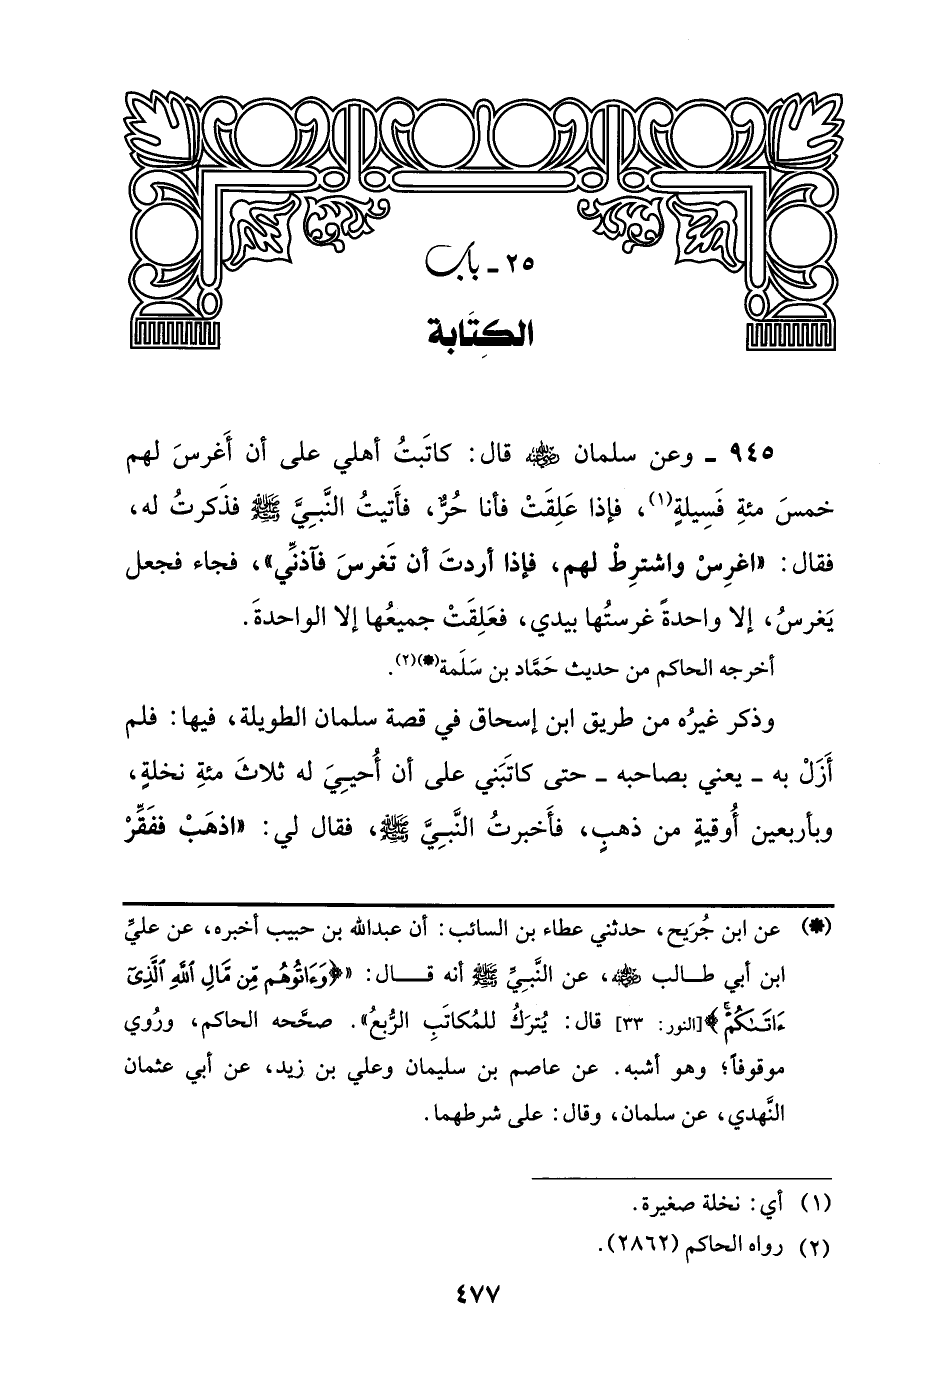 ٢٥ - باب
الكِتَابة
٩٤٥ - وعن سلمان ﷺ قال: كاتَبتُ أهلي على أن أَغرسَ لهم
خمسَ مئةِ فَسِيلةٍ(١)، فإذا عَلِقَتْ فأنا حُرٌّ، فأَتيتُ النَّبيَّ ﷺ فذَكرتُ له،
فقال: «اغرِسْ واشترِطْ لهم، فإذا أردتَ أن تَغرسَ فآذنِّي»، فجاء فجعل
يَغرسُ، إلا واحدةً غرستُها بيدي، فعَلِقَتْ جميعُها إلا الواحدةَ.
أخرجه الحاكم من حديث حَمَّاد بن سَلَمة(*)(٢).
وذكر غيرُه من طريق ابن إسحاق في قصة سلمان الطويلة، فيها: فلم
أَزَلْ به - يعني بصاحبه - حتى كاتَبَني على أن أُحييَ له ثلاثَ مئةِ نخلةٍ،
وبأربعين أُوقيةٍ من ذهبٍ، فأَخبرتُ النَّبيَّ ﷺ، فقال لي: «اذهَبْ ففَقِّرْ
(*) عن ابن جُرَيج، حدثني عطاء بن السائب: أن عبدالله بن حبيب أخبره، عن عليِّ
ابن أبي طالب رضي الله عنه، عن النَّبيِّ ﷺ أنه قال: «﴿وَءَاتُوهُم مِّن مَّالِ ٱللَّهِ ٱلَّذِىٓ
ءَاتَىٰكُمْ﴾[النور: ٣٣] قال: يُترَكُ للمُكاتَبِ الرُّبعُ». صحَّحه الحاكم، ورُوي
موقوفاً؛ وهو أشبه. عن عاصم بن سليمان وعلي بن زيد، عن أبي عثمان
النَّهدي، عن سلمان، وقال: على شرطهما.
(١) أي: نخلة صغيرة.
(٢) رواه الحاكم (٢٨٦٢).
٤٧٧